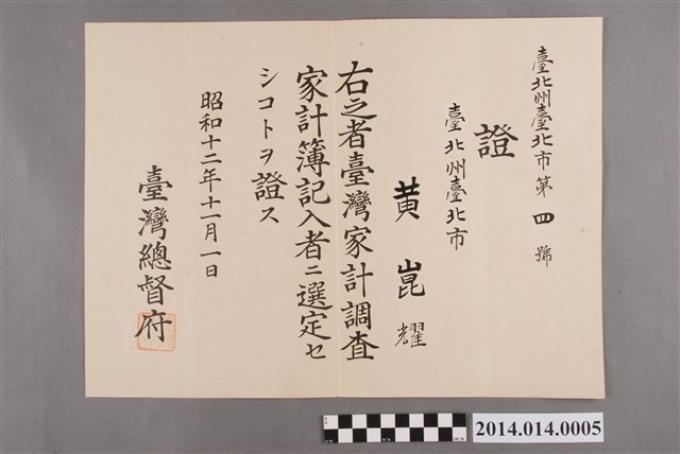 臺北州臺北市第四號
證
臺北州臺北市
黄崑耀
右之者臺灣家計調査
家計簿記入者ニ選定セ
シコトヲ證ス
昭和十二年十一月一日
臺灣總督府
2014.014.0005